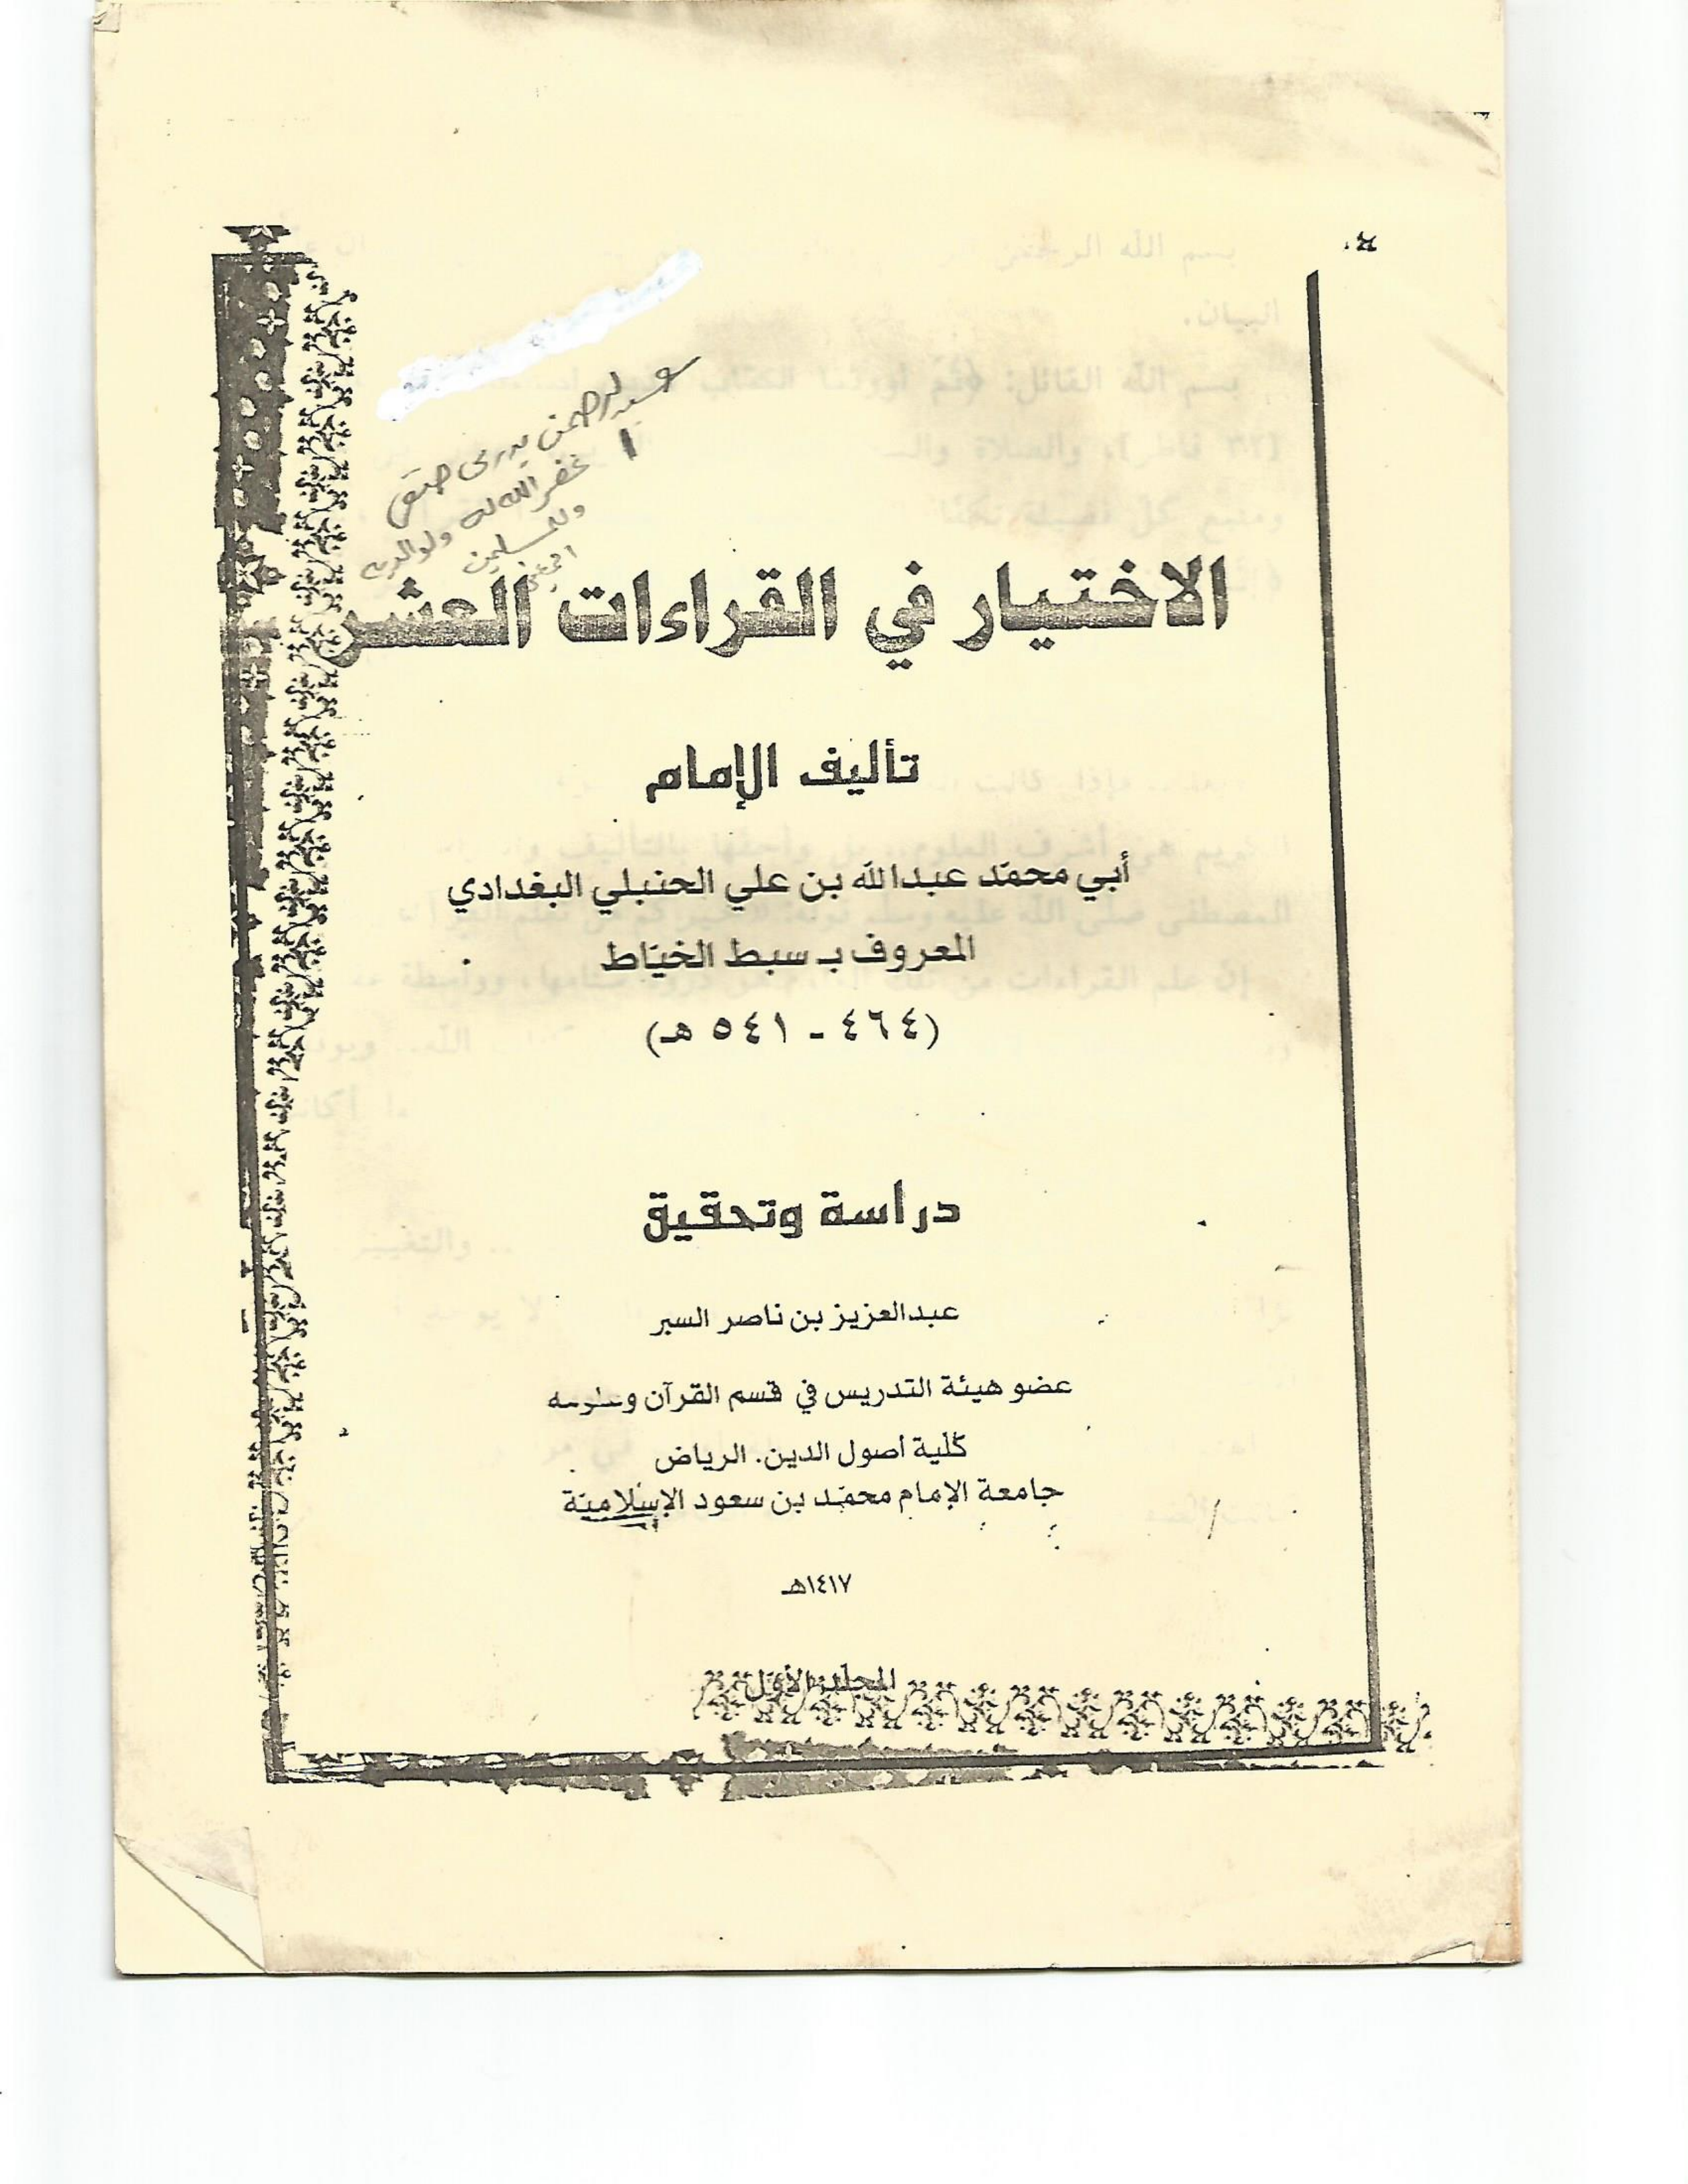 غفر الله له ولوالديه
وللمسلمين
الاختيار في القراءات العشر
تأليف الإمام
أبي محمّد عبدالله بن علي الحنبلي البغدادي
المعروف بـ سبط الخيّاط
(٤٦٤ - ٥٤١ هـ)
دراسة وتحقيق
عبدالعزيز بن ناصر السبر
عضو هيئة التدريس في قسم القرآن وعلومه
كلية أصول الدين. الرياض
جامعة الإمام محمّد بن سعود الإسلامية
١٤١٧هـ
المجلد الأول